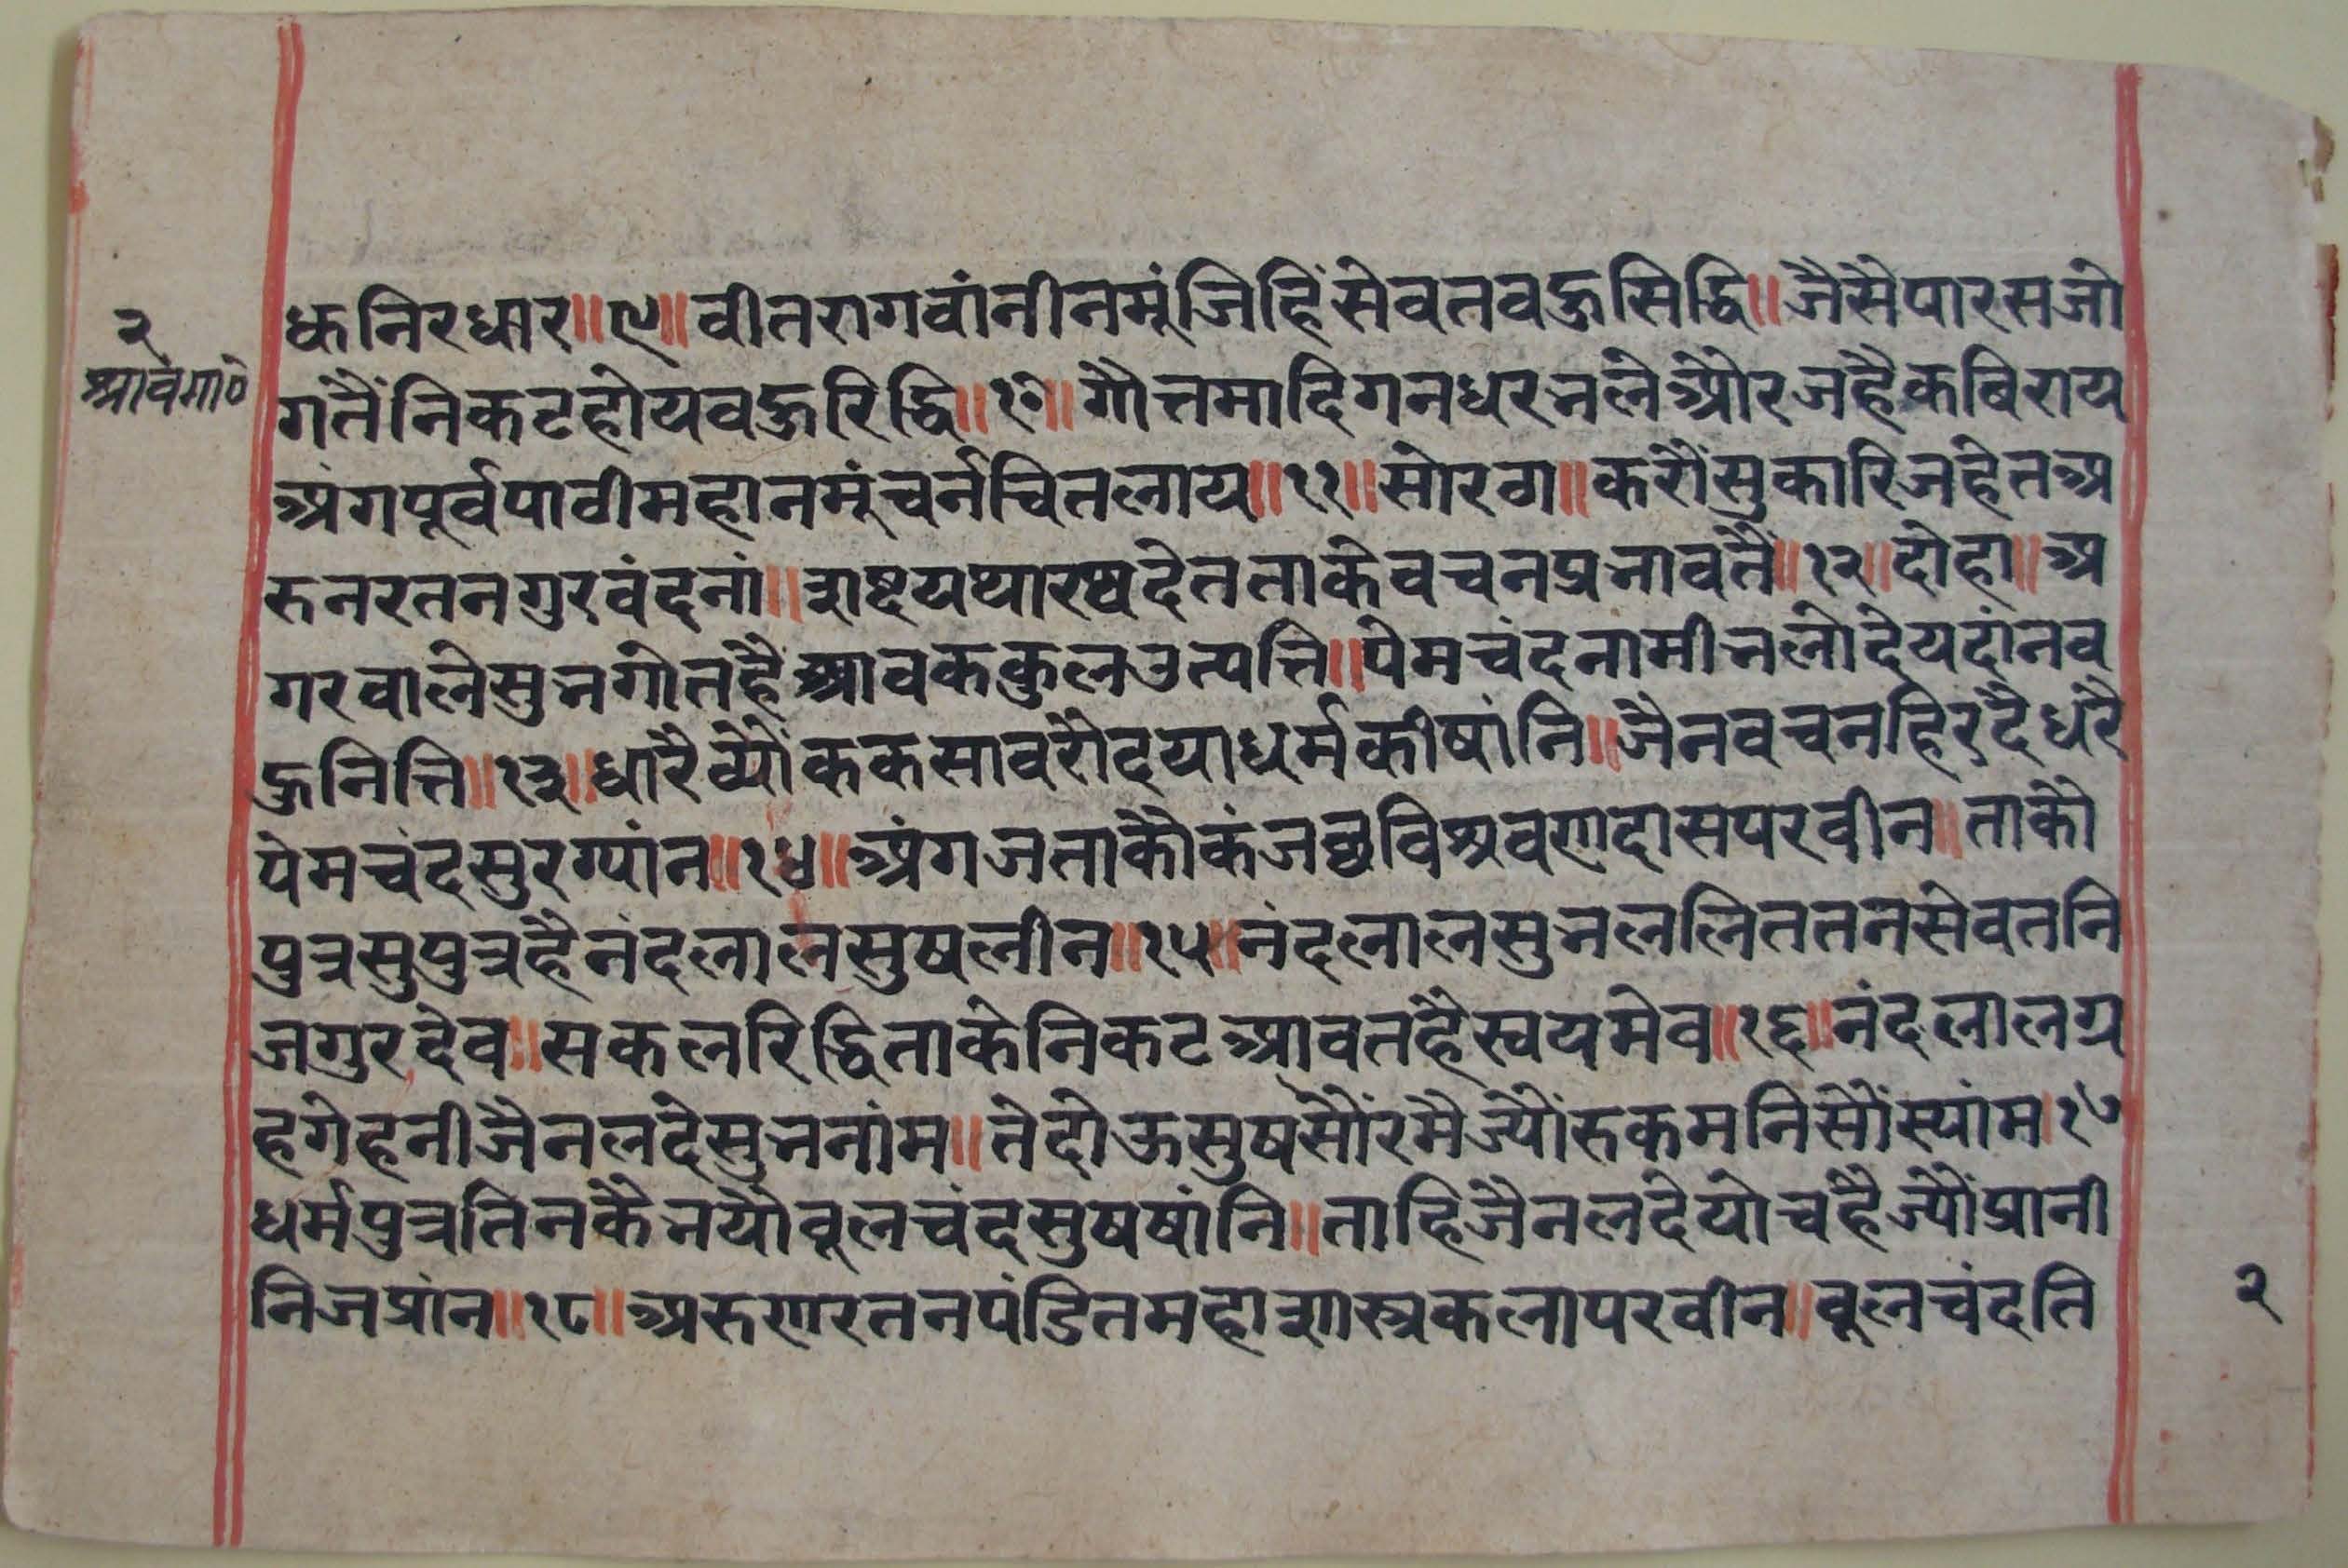 २
श्रावगा०
धकनिरधार॥९॥वीतरागवांनीनमूंजिहिंसेवतवहुसिद्धि॥जैसैपारसजो
गतैंनिकटहोयवहुरिद्धि॥१०॥गौत्तमादिगनधरभलेऔरजहैकविराय
अंगपूर्वपावीमहानमूंचर्नचितलाय॥११॥सोरठा॥करौंसुकारिजहेतअ
रुनरतनगुरवंदनां॥शष्टयथारथदेतताकेवचनप्रभावतैं॥१२॥दोहा॥अ
गरवालेसुभगोतहैश्रावककुलउत्पत्ति॥पेमचंदनामीभलोदेयदांनव
हुनित्ति॥१३॥धारैव्यौंककसावरौदयाधर्मकीषांनि॥जैनवचनहिरदैधरै
पेमचंदसुरग्यांन॥१४॥अंगजताकौकंजछविश्रवणदासपरवीन॥ताकौ
पुत्रसुपुत्रहैनंदलालसुषलीन॥१५॥नंदलालसुभललिततनसेवतनि
जगुरदेव॥सकलरिद्धिताकेनिकटआवतहैस्वयमेव॥१६॥नंदलालग्र
हगेहनीजैनलदेसुभनांम॥तेदोऊसुषसौंरमैज्यौंरुकमनिसौंस्यांम।१७
धर्मपुत्रतिनकैभयौवूलचंदसुषषांनि॥ताहिजैनलदेयोचहैज्यौंप्रानी
निजप्रांन॥१८॥अरुणरतनपंडितमहाशास्त्रकलापरवीन॥वूलचंदति
२